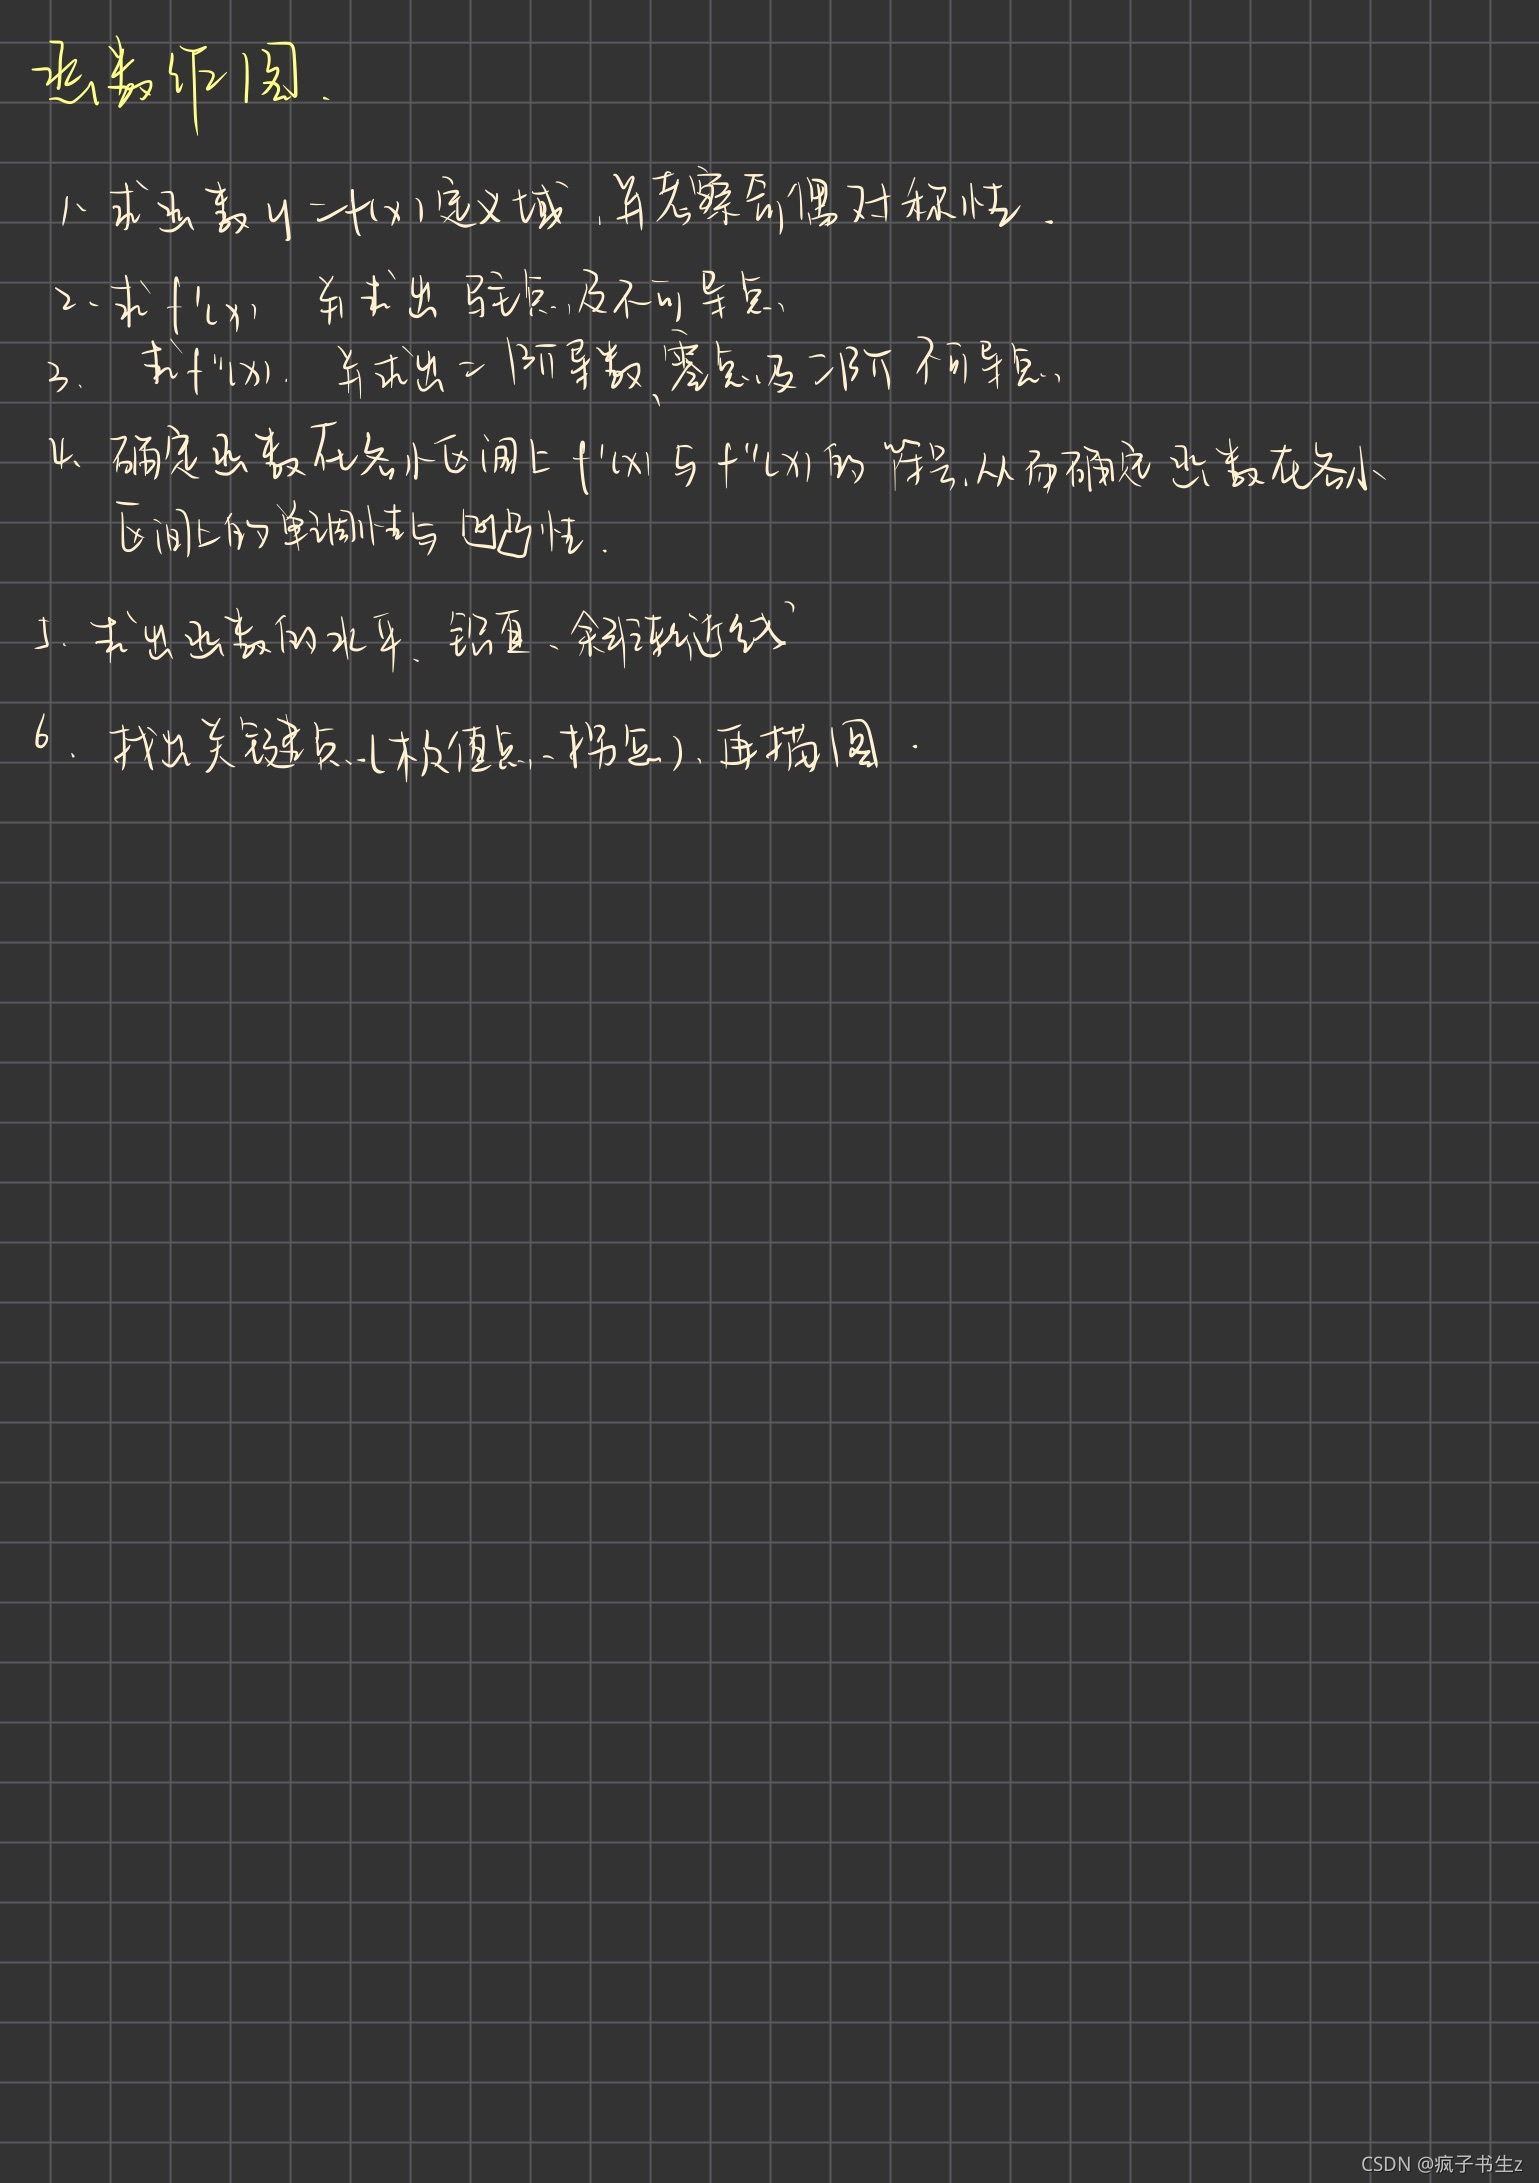 函数作图.
1、求函数y=f(x)定义域,并考察奇偶对称性.
2、求f'(x) 并求出驻点及不可导点、
3. 求f''(x). 并求出二阶导数、零点及二阶不可导点、
4、确定函数在各小区间上f'(x)与f''(x)的符号,从而确定函数在各小
区间上的单调性与凹凸性.
5. 求出函数的水平、铅直、斜渐近线
6. 找出关键点(极值点、拐点)、再描图.
CSDN @疯子书生z